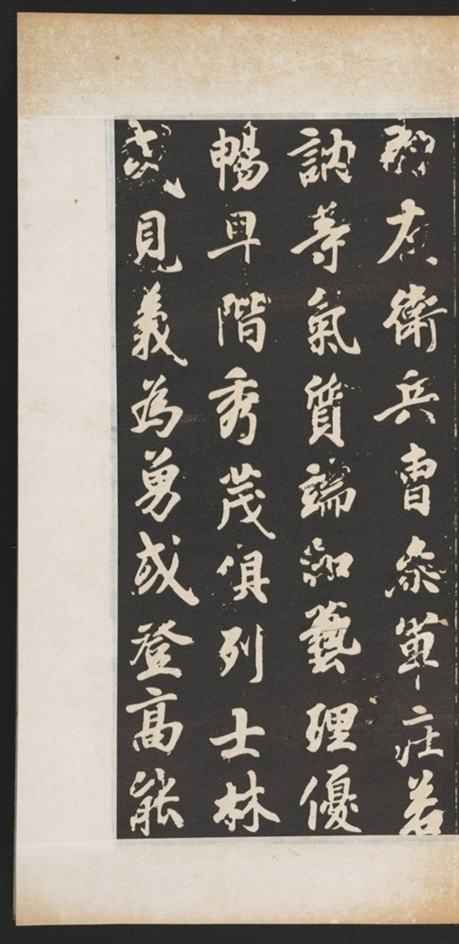 右衛兵曹叅軍莊若
訥等氣質端和藝理優
暢早階秀茂俱列士林
或見義為勇或登高能